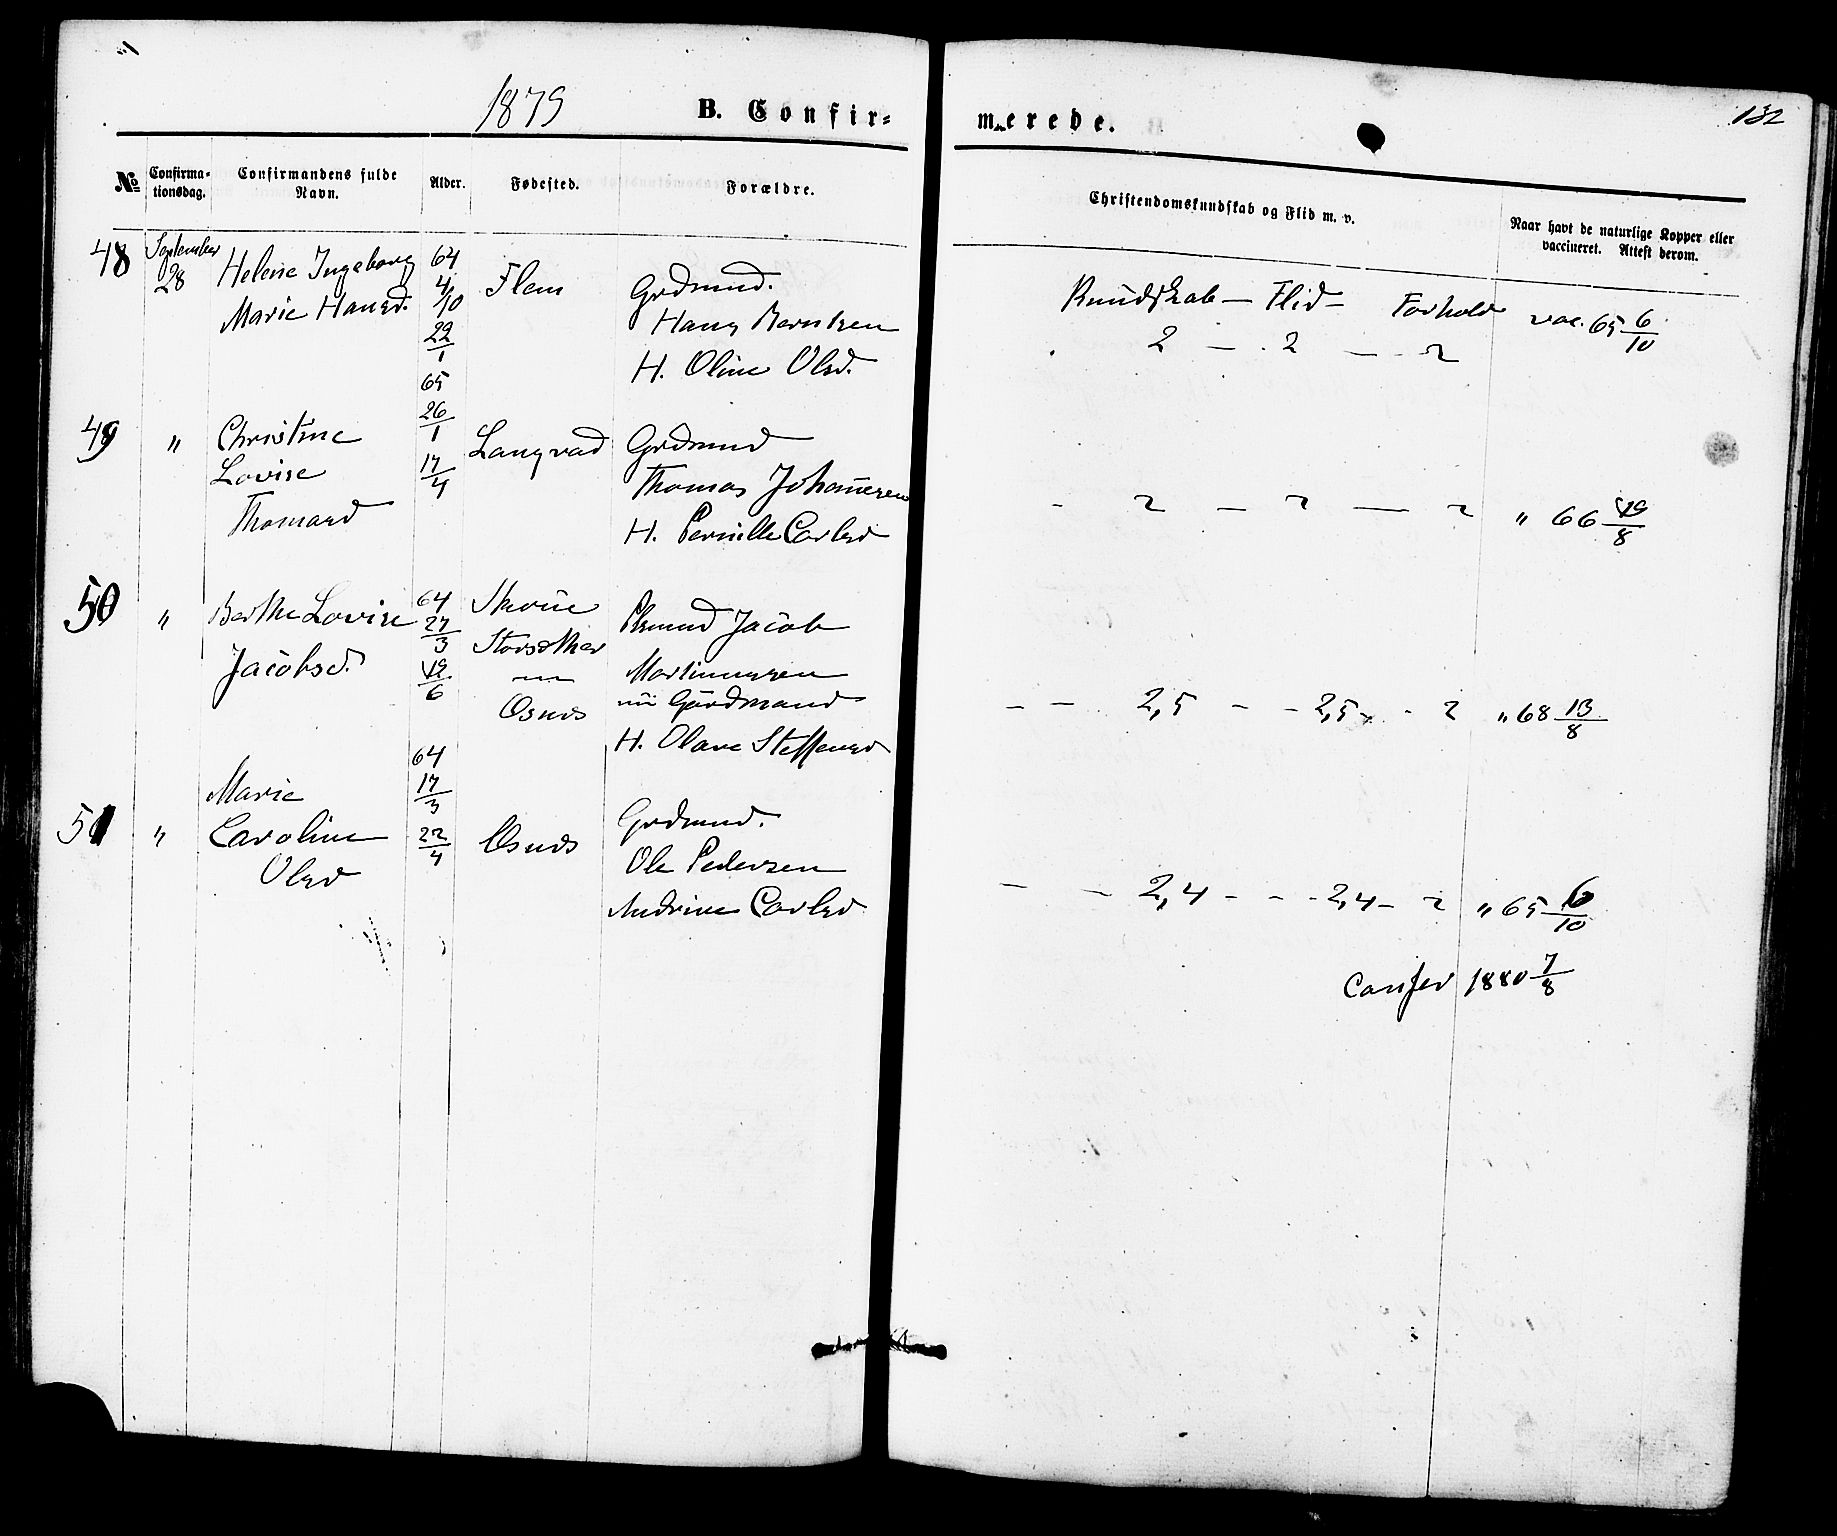 1879 B. Confir- merede. 132
No Confirma-tionsdag. Confirmandens fulde Navn. Alder. Fødested. Forældre. Christendomskundskab og Flid m. v. Naar havt de naturlige Kopper eller vaccineret. Attest derom.
48 September 28 Helene Ingeborg 64
Marie Hansd. 4/10 Flem Grdmnd.
29/1 Hans Berntsen
H. Oline Olsd.
Kundskab – Flid – Forhold vac. 65 6/10
2 – 2 – 2
49 " Christine 65 26/1 Langvad Grdmnd
Lovise 17/4 Thomas Johannesen
Thomasd H. Pernille Carlsd
- 2 – 2 – 2 " 66 19/8
50 " Berthe Lovise 64 27/3
Jacobsd. 19/6 Storsæther Jacob
Osnes Martinussen
nu Gårdmand
H. Olave Steffensd
– – 2,5 – – 2,5 – 2 " 68 13/8
51 " Marie 64 17/3 Grdmnd.
Caroline 22/4 Osnes Ole Pedersen
Olsd Andrine Carlsd
– – 2,4 – – 2,4 – 2 " 65 6/10
Confer 1880 7/8